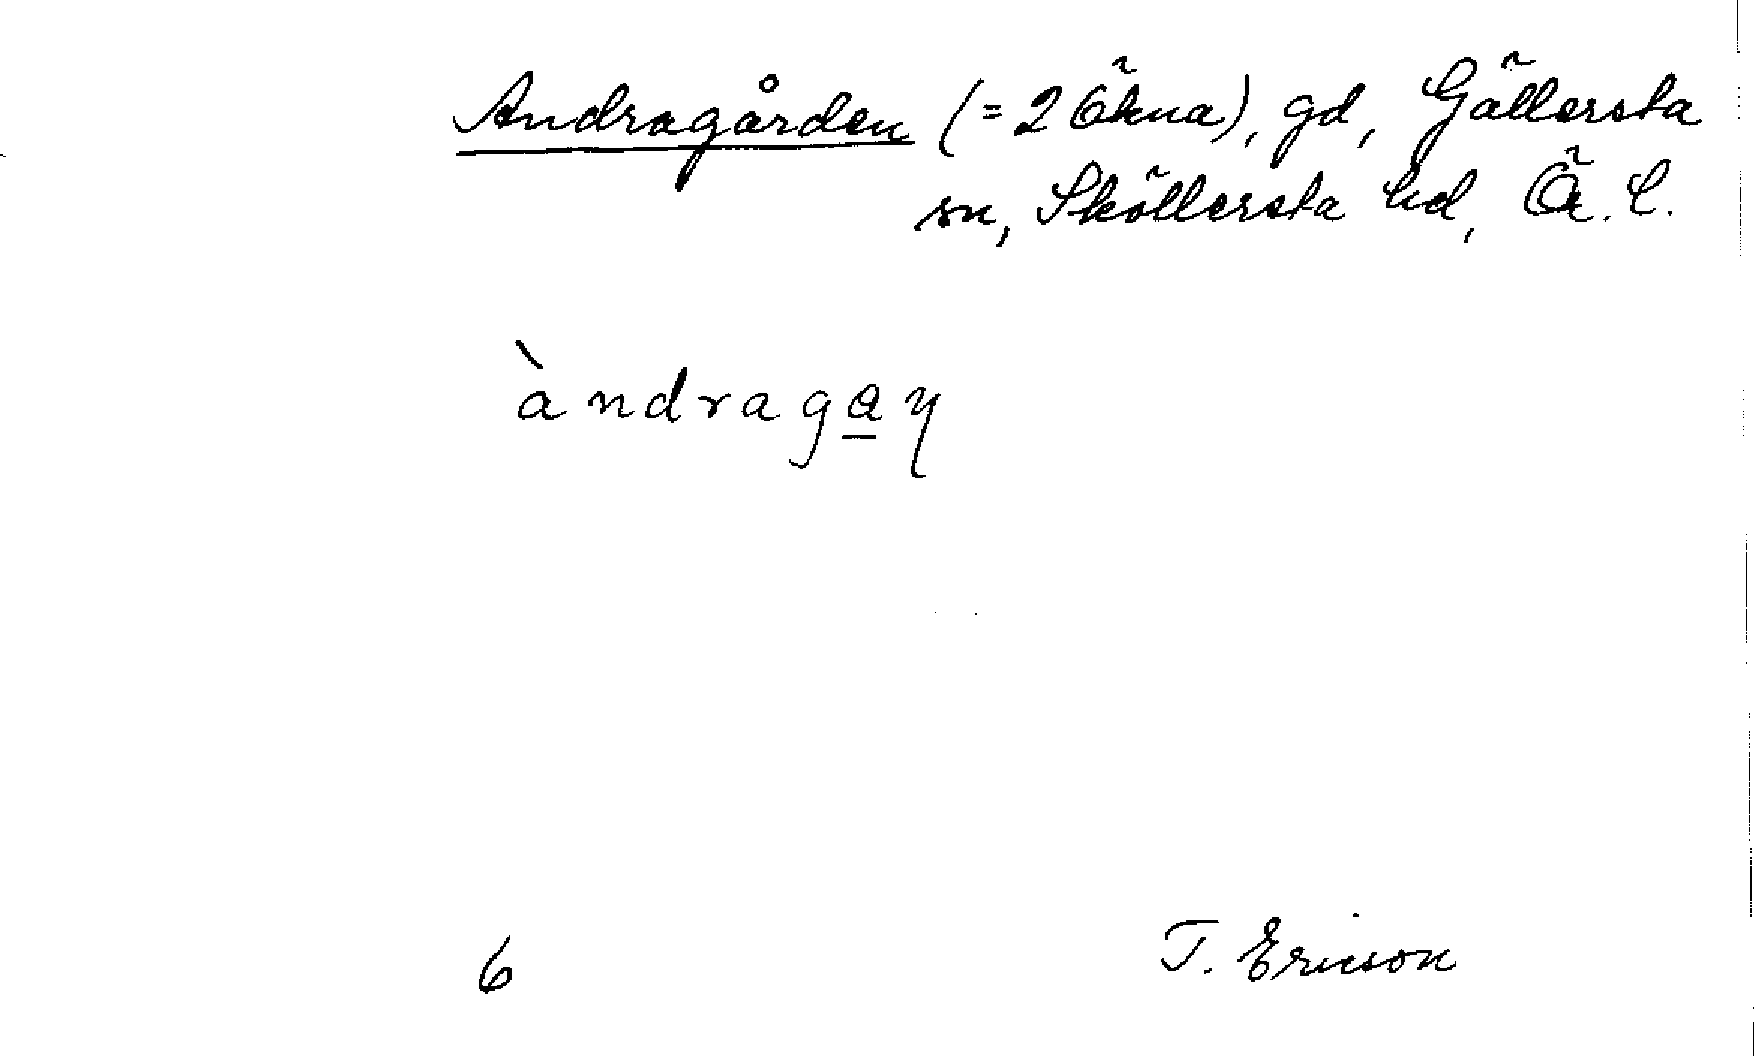 Andragården (= 2 Ökna), gd, Gällersta
sn, Sköllersta hd, Ö. l.
àndraga̲ɳ
6
T. Ericson